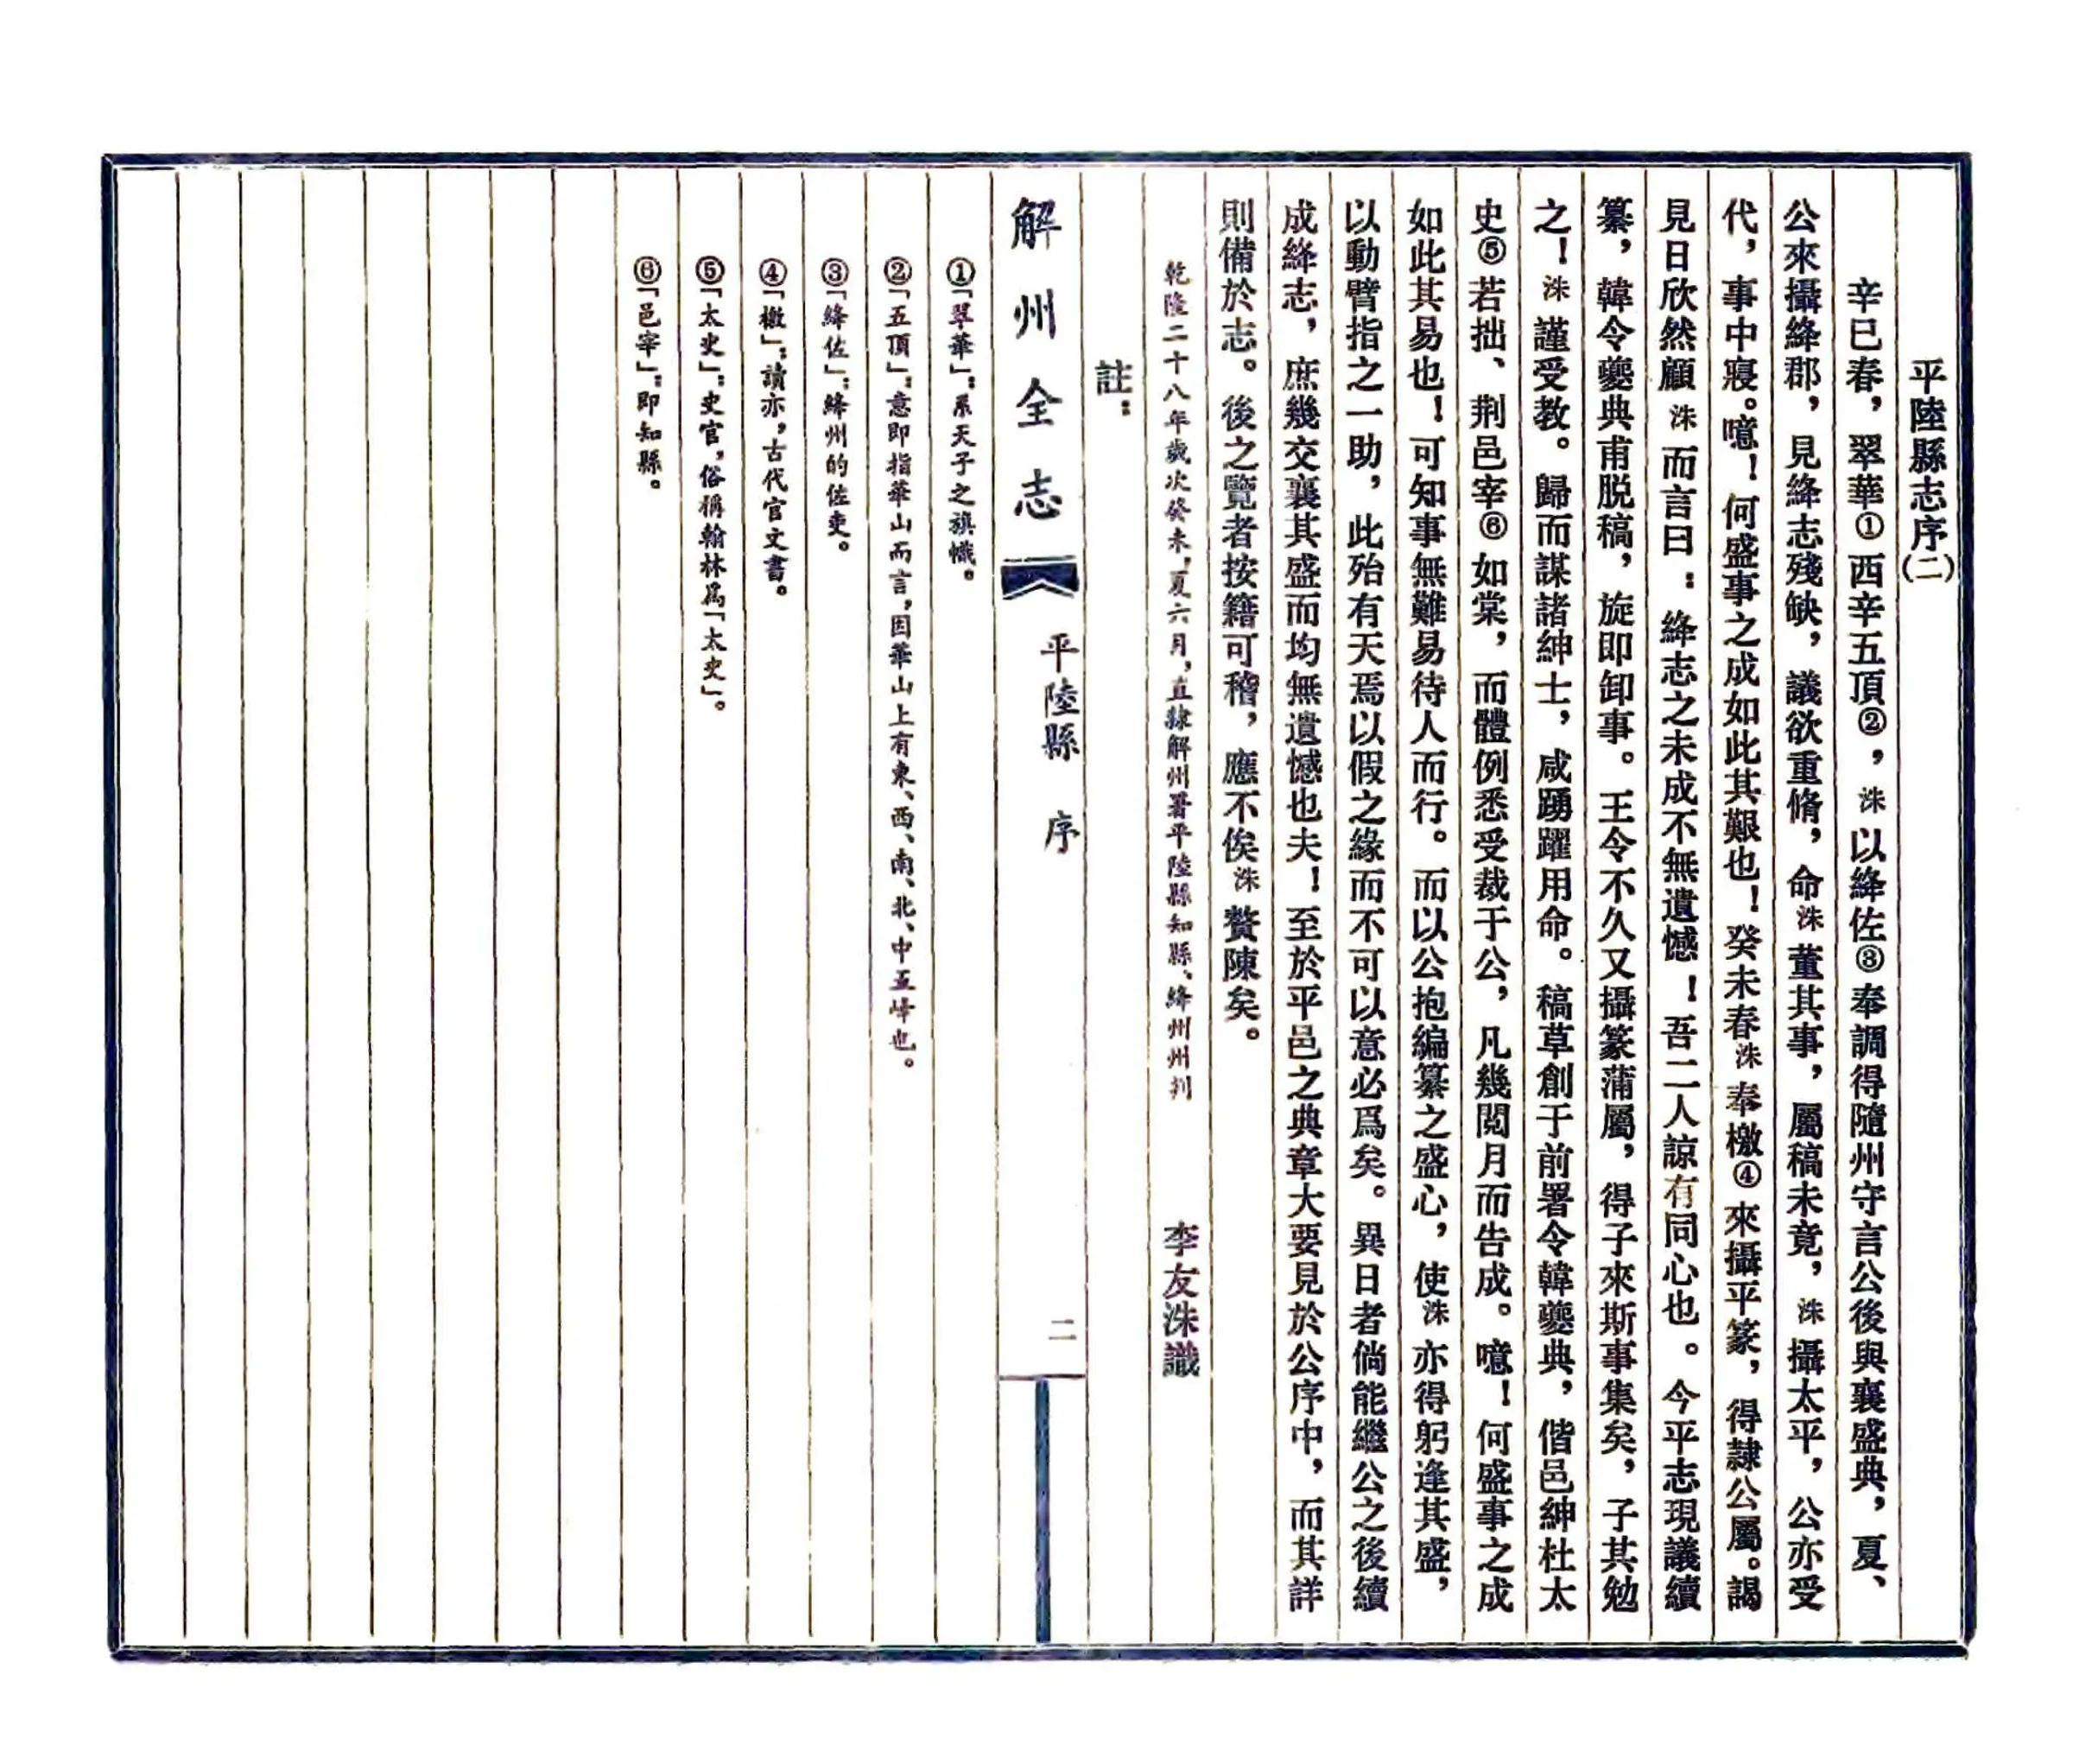 平陸縣志序(二)
辛巳春，翠華①西幸五頂②，洙以絳佐③奉調得隨州守言公後與襄盛典，夏、
公來攝絳郡，見絳志殘缺，議欲重脩，命洙董其事，屬稿未竟，洙攝太平，公亦受
代，事中寢。噫！何盛事之成如此其艱也！癸未春洙奉檄④來攝平篆，得隸公屬。謁
見日欣然顧洙而言曰：絳志之未成不無遺憾！吾二人諒有同心也。今平志現議續
纂，韓令夔典甫脱稿，旋即卸事。王令不久又攝篆蒲屬，得子來斯事集矣，子其勉
之！洙謹受教。歸而謀諸紳士，咸踴躍用命。稿草創于前署令韓夔典，偕邑紳杜太
史⑤若拙、荆邑宰⑥如棠，而體例悉受裁于公，凡幾閲月而告成。噫！何盛事之成
如此其易也！可知事無難易待人而行。而以公抱編纂之盛心，使洙亦得躬逢其盛，
以動臂指之一助，此殆有天焉以假之緣而不可以意必爲矣。異日者倘能繼公之後續
成絳志，庶幾交襄其盛而均無遺憾也夫！至於平邑之典章大要見於公序中，而其詳
則備於志。後之覽者按籍可稽，應不俟洙贅陳矣。
乾隆二十八年歲次癸未，夏六月，直隸解州署平陸縣知縣、絳州州判　李友洙識
註：
解州全志　平陸縣　序　二
①「翠華」：系天子之旗幟。
②「五頂」：意即指華山而言，因華山上有東、西、南、北、中五峰也。
③「絳佐」：絳州的佐吏。
④「檄」：讀亦，古代官文書。
⑤「太史」：史官，俗稱翰林爲「太史」。
⑥「邑宰」：即知縣。